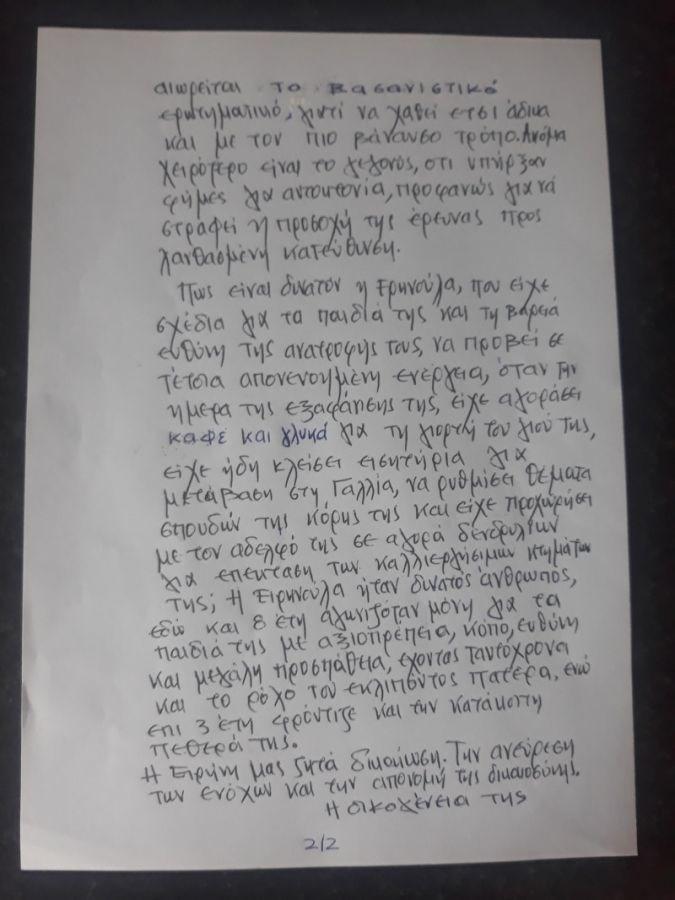 αιωρείται το βασανιστικό
ερωτηματικό, γιατί να χαθεί έτσι άδικα
και με τον πιο βάναυσο τρόπο. Ακόμα
χειρότερο είναι το γεγονός, ότι υπήρξαν
φήμες για αυτοκτονία, προφανώς για να
στραφεί η προσοχή της έρευνας προς
λανθασμένη κατεύθυνση.
Πως είναι δυνατόν η Ειρηνούλα, που είχε
σχέδια για τα παιδιά της και τη βαρειά
ευθύνη της ανατροφής τους, να προβεί σε
τέτοια απονενοημένη ενέργεια, όταν την
ημέρα της εξαφάνισης της, είχε αγοράσει
καφέ και γλυκά για τη γιορτή του γιού της,
είχε ήδη κλείσει εισητήρια για
μετάβαση στη Γαλλία, να ρυθμίσει θέματα
σπουδών της κόρης της και είχε προχωρήσει
με τον αδελφό της σε αγορά δενδρυλίων
για επέκταση των καλλιεργήσιμων κτημάτων
της; Η Ειρηνούλα ήταν δυνατός άνθρωπος,
εδώ και 8 έτη αγωνιζόταν μόνη για τα
παιδιά της με αξιοπρέπεια, κόπο, ευθύνη
και μεγάλη προσπάθεια, έχοντας ταυτόχρονα
και το ρόλο του εκλιπόντος πατέρα, ενώ
επι 3 έτη φρόντιζε και την κατάκοιτη
πεθερά της.
Η Ειρήνη μας ζητά δικαίωση. Την ανεύρεση
των ενόχων και την απονομή της δικαιοσύνης.
Η οικογένεια της
2/2